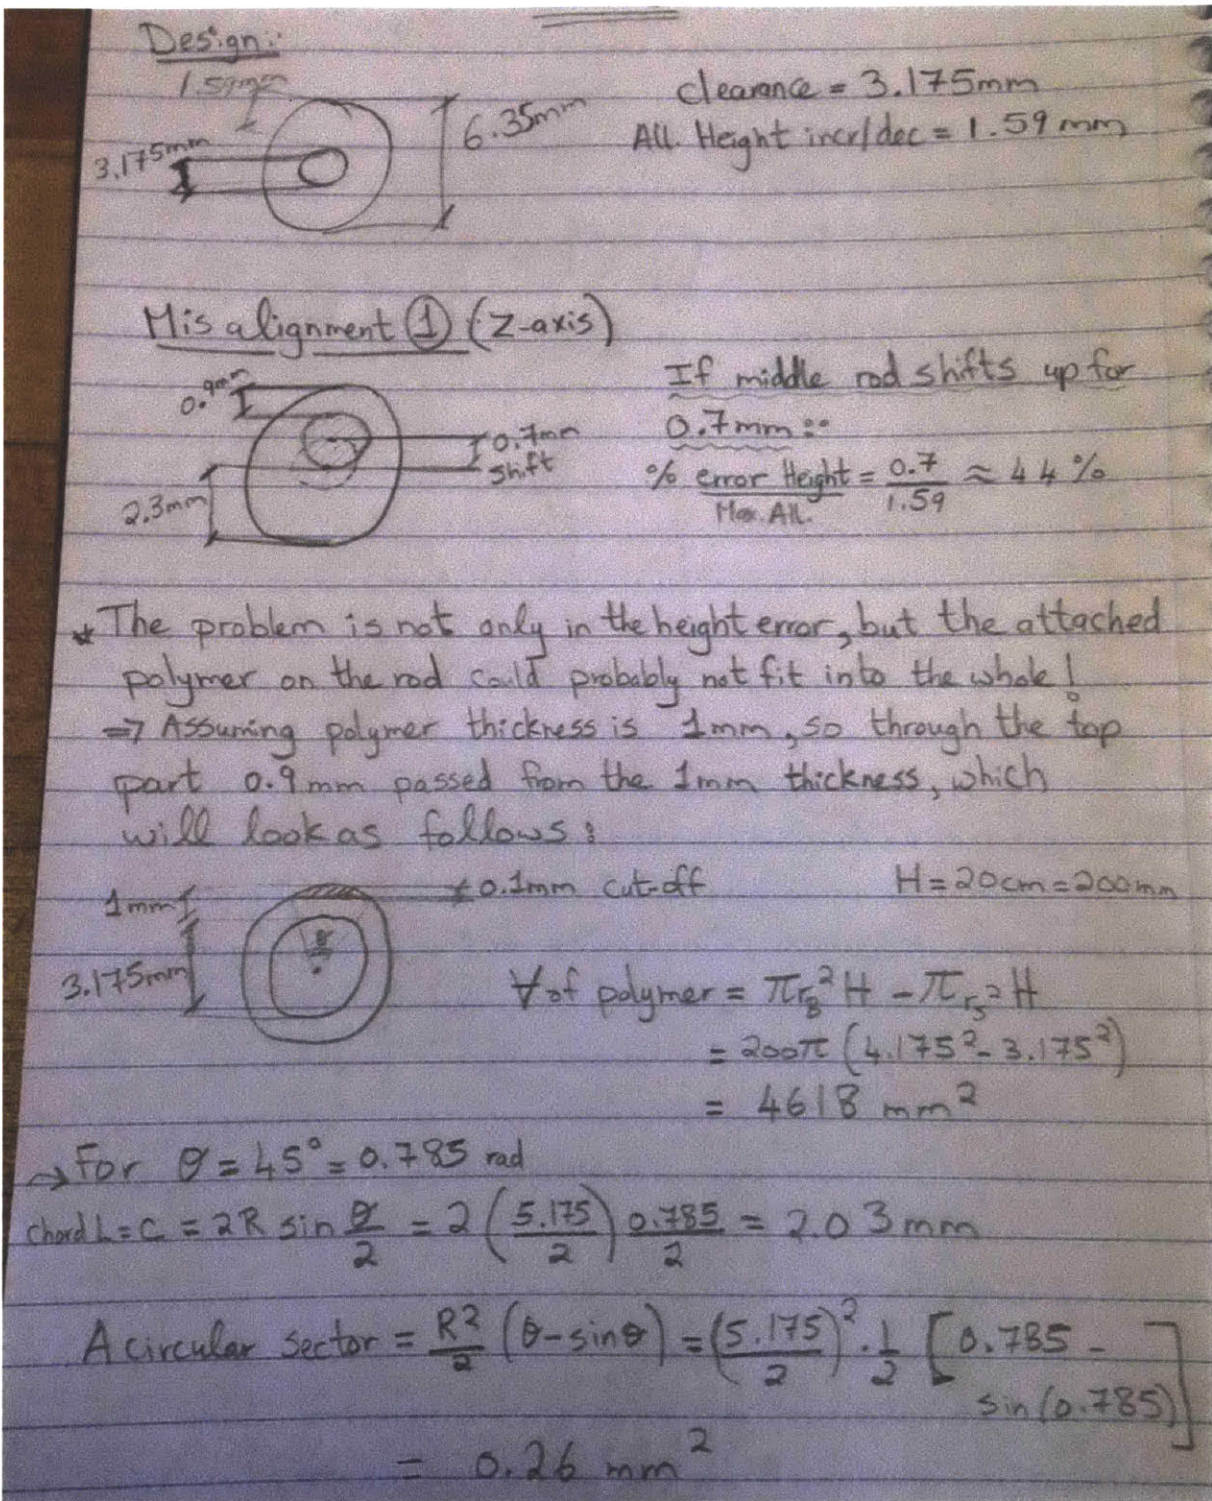 Design:
1.59mm
clearance = 3.175mm
6.35mm
All. Height incr/dec = 1.59mm
3.175mm
Misalignment ① (Z-axis)
If middle rod shifts up for
0.9mm
0.7mm
0.7mm:
shift
% error Height / Max. All. = 0.7/1.59 ≈ 44%
2.3mm
* The problem is not only in the height error, but the attached
polymer on the rod could probably not fit into the whole!
=> Assuming polymer thickness is 1mm, so through the top
part 0.9mm passed from the 1mm thickness, which
will look as follows:
0.1mm cut-off
H = 20cm = 200mm
1mm
θ
3.175mm
∀ of polymer = πr_B²H - πr_s²H
= 200π (4.175² - 3.175²)
= 4618 mm²
→ For θ = 45° = 0.785 rad
chord L = C = 2R sin θ/2 = 2(5.175/2) 0.785/2 = 2.03mm
A circular sector = R²/2 (θ - sinθ) = (5.175/2)² · 1/2 [0.785 -
sin(0.785)]
= 0.26 mm²